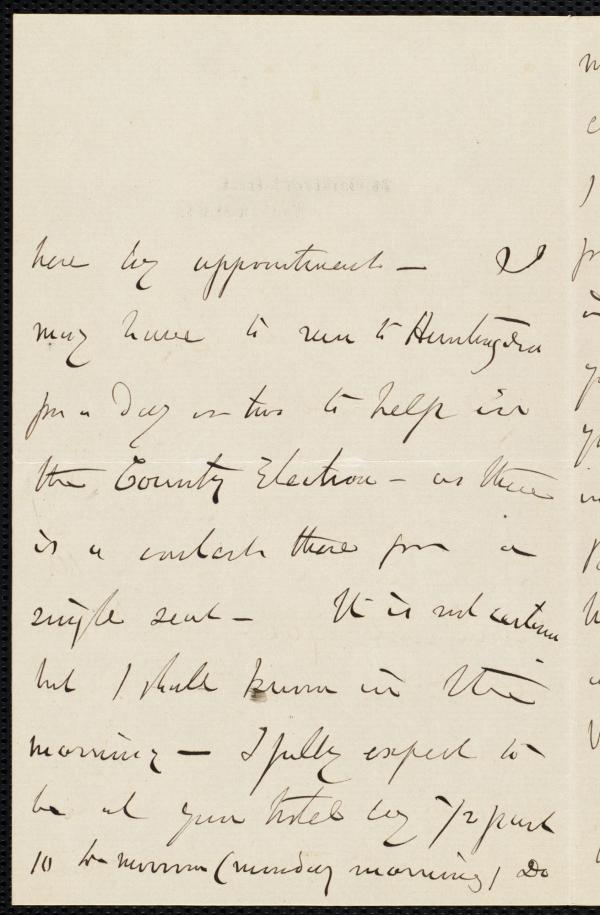 here by appointment — I
may have to run to Huntingdon
for a day or two to help in
the County Election — as there
is a contest there for a
single seat — It is not certain
but I shall know in the
morning — I fully expect to
be at your hotel by 1/2 past
10 to-morrow (monday morning) Do